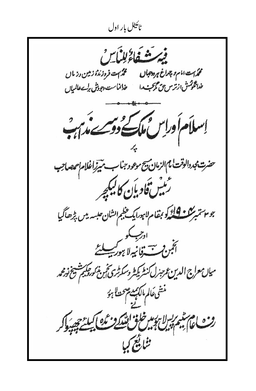 ٹائٹل بار اول
فِيْهِ شِفَاءٌ لِّلنَّاسِ
محمدؐ است امام و چراغ ہر دو جہاں محمدؐ است فروزندہ زمین و زماں
خدا نگویمش از ترس حق مگر بخدا خدا نماست وجودش برائے عالمیاں
اسلام اور اس ملک کے دوسرے مذاہب
پر
حضرت مجدد الوقت امام الزمان مسیح موعود جناب میرزا غلام احمد صاحب
رئیس قادیان کا لیکچر
جو ۳ ستمبر ۱۹۰۴ء کو بمقام لاہور ایک عظیم الشان جلسہ میں پڑھا گیا
اور جسکو
انجمن فرقانیہ لاہور کیلئے
میاں معراج الدین عمر جنرل کنٹریکٹر و سکرٹری انجمن مذکور و حکیم شیخ نور محمد
منشی عالم مالک ہمدم صحت لاہور
نے
رفاہ عام سٹیم پریس لاہور میں خلق اللہ کے فائدہ کیلئے چھپوا کر
شائع کیا